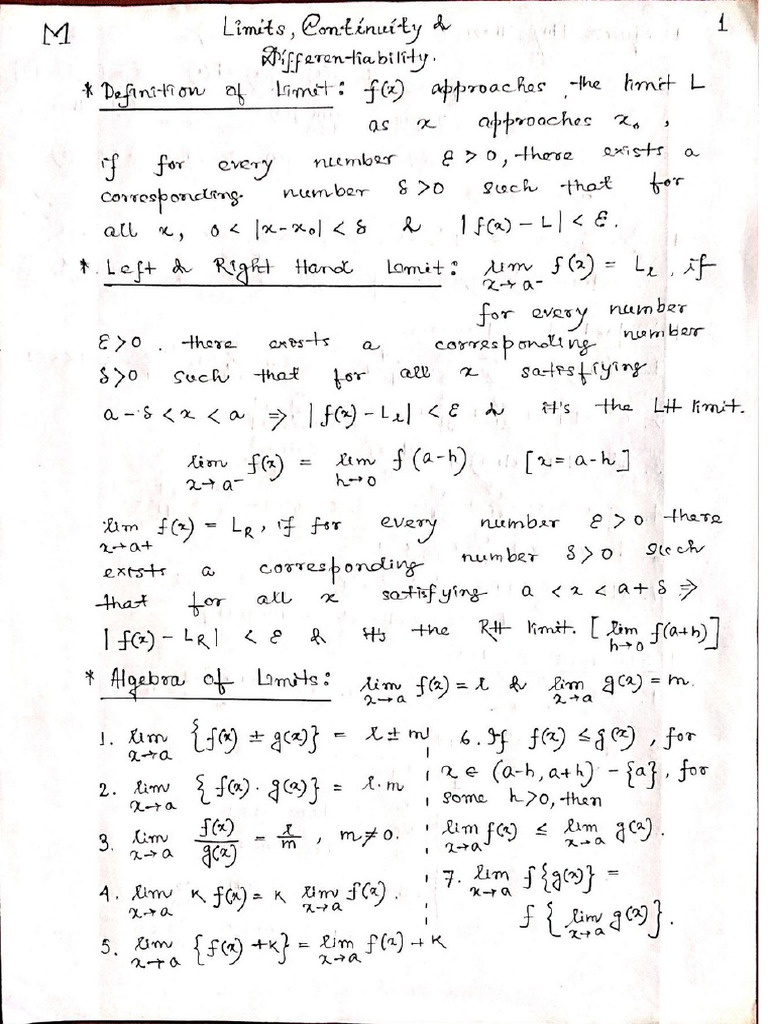 M
Limits, Continuity &
Differentiability.
1
* Definition of Limit: f(x) approaches the limit L
as x approaches x₀,
if for every number ε>0, there exists a
corresponding number δ>0 such that for
all x, 0 < |x-x₀| < δ & |f(x) - L| < ε.
* Left & Right Hand Limit: lim x→a- f(x) = Lℓ, if
for every number
ε>0. there exists a corresponding number
δ>0 such that for all x satisfiying
a-δ < x < a ⇒ |f(x) - Lℓ| < ε & it's the LH limit.
lim x→a- f(x) = lim h→0 f(a-h) [x = a-h]
lim x→a+ f(x) = L_R, if for every number ε>0 there
exists a corresponding number δ>0 such
that for all x satisfying a < x < a+δ ⇒
|f(x) - L_R| < ε & it's the RH limit. [lim h→0 f(a+h)]
* Algebra of Limits: lim x→a f(x) = ℓ & lim x→a g(x) = m.
1. lim x→a {f(x) ± g(x)} = ℓ ± m
2. lim x→a {f(x) · g(x)} = ℓ · m
3. lim x→a f(x)/g(x) = ℓ/m, m≠0.
4. lim x→a K f(x) = K lim x→a f(x).
5. lim x→a {f(x) + K} = lim x→a f(x) + K
6. If f(x) ≤ g(x), for
x ∈ (a-h, a+h) - {a}, for
some h>0, then
lim x→a f(x) ≤ lim x→a g(x).
7. lim x→a f{g(x)} =
f{lim x→a g(x)}.